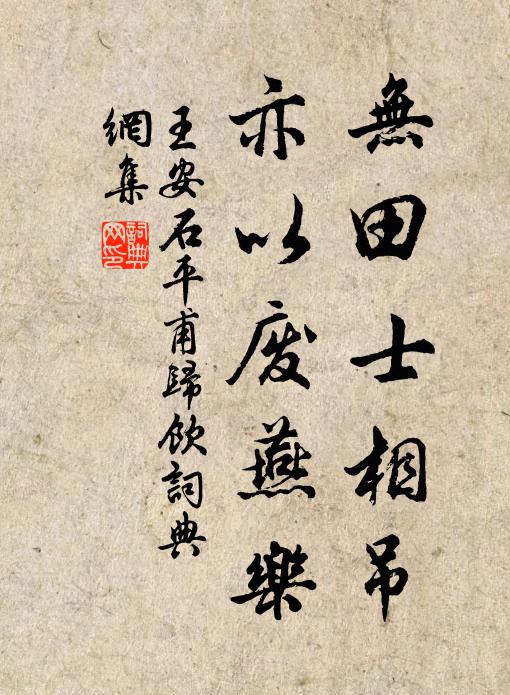 無田士相吊
亦以废燕樂
王安石平甫歸飲詞典
網集
詞典
网印